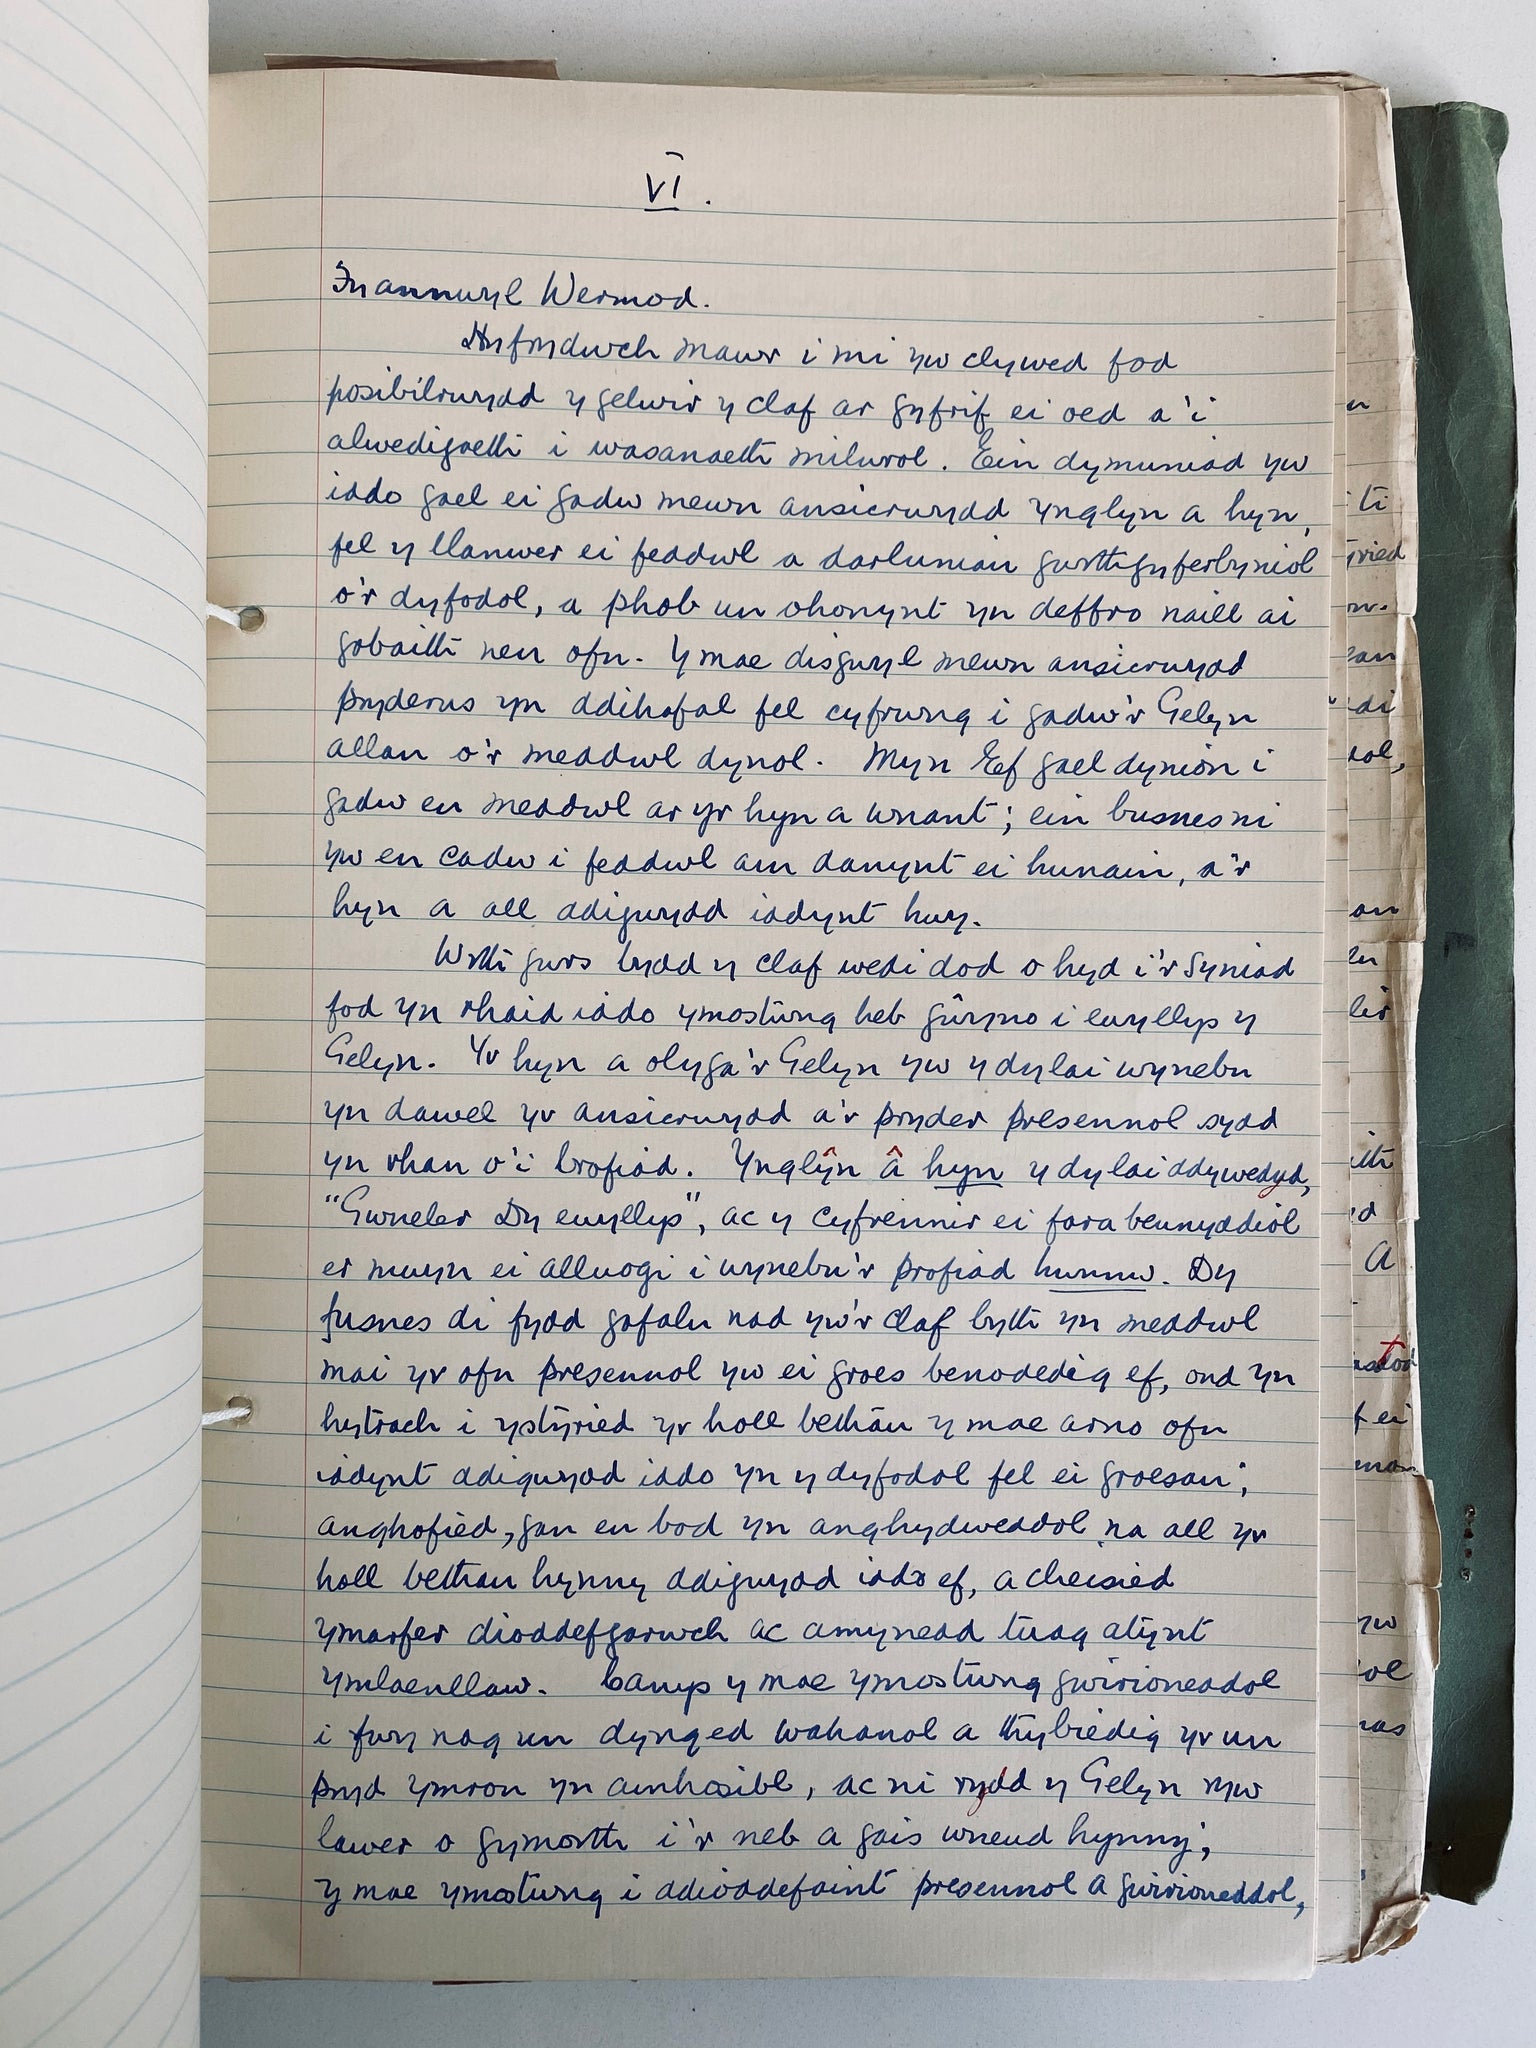 VI.
Fy annwyl Wermod.
Hyfrydwch mawr i mi yw clywed fod
posibilrwydd y gelwir y claf ar gyfrif ei oed a'i
alwedigaeth i wasanaeth milwrol. Ein dymuniad yw
iddo gael ei gadw mewn ansicrwydd ynglyn a hyn,
fel y llanwer ei feddwl a darluniau gwrthgyferbyniol
o'r dyfodol, a phob un ohonynt yn deffro naill ai
gobaith neu ofn. Y mae disgwyl mewn ansicrwydd
pryderus yn ddihafal fel cyfrwng i gadw'r Gelyn
allan o'r meddwl dynol. Myn Ef gael dynion i
gadw eu meddwl ar yr hyn a wnant; ein busnes ni
yw eu cadw i feddwl am danynt ei hunain, a'r
hyn a all ddigwydd iddynt hwy.
Wrth gwrs bydd y claf wedi dod o hyd i'r syniad
fod yn rhaid iddo ymostwng heb gŵyno i ewyllys y
Gelyn. Yr hyn a olyga'r Gelyn yw y dylai wynebu
yn dawel yr ansicrwydd a'r pryder presennol sydd
yn rhan o'i brofiad. Ynglŷn â hyn y dylai ddywedyd,
"Gwneler Dy ewyllys", ac y cyfrennir ei fara beunyddiol
er mwyn ei alluogi i wynebu'r profiad hwnnw. Dy
fusnes di fydd gofalu nad yw'r claf byth yn meddwl
mai yr ofn presennol yw ei groes benodedig ef, ond yn
hytrach i ystyried yr holl bethau y mae arno ofn
iddynt ddigwydd iddo yn y dyfodol fel ei groesau;
anghofied, gan eu bod yn anghydweddol, na all yr
holl bethau hynny ddigwydd iddo ef, a cheisied
ymarfer dioddefgarwch ac amynedd tuag atynt
ymlaenllaw. Camp y mae ymostwng gwirioneddol
i fwy nag un dynged wahanol a thybiedig yr un
pryd ymron yn amhosibl, ac ni rydd y Gelyn ryw
lawer o gymorth i'r neb a gais wneud hynny;
y mae ymostwng i ddioddefaint presennol a gwirioneddol,
ti
ried
on
ith
A
f ei
yw